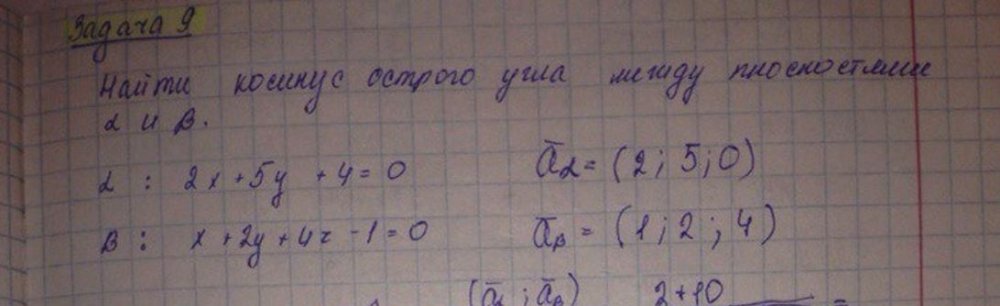 Задача 9
Найти косинус острого угла между плоскостями
α и β.
α : 2x + 5y + 4 = 0 āα = (2; 5; 0)
β : x + 2y + 4z - 1 = 0 āβ = (1; 2; 4)
(āα ; āβ) 2+10 =